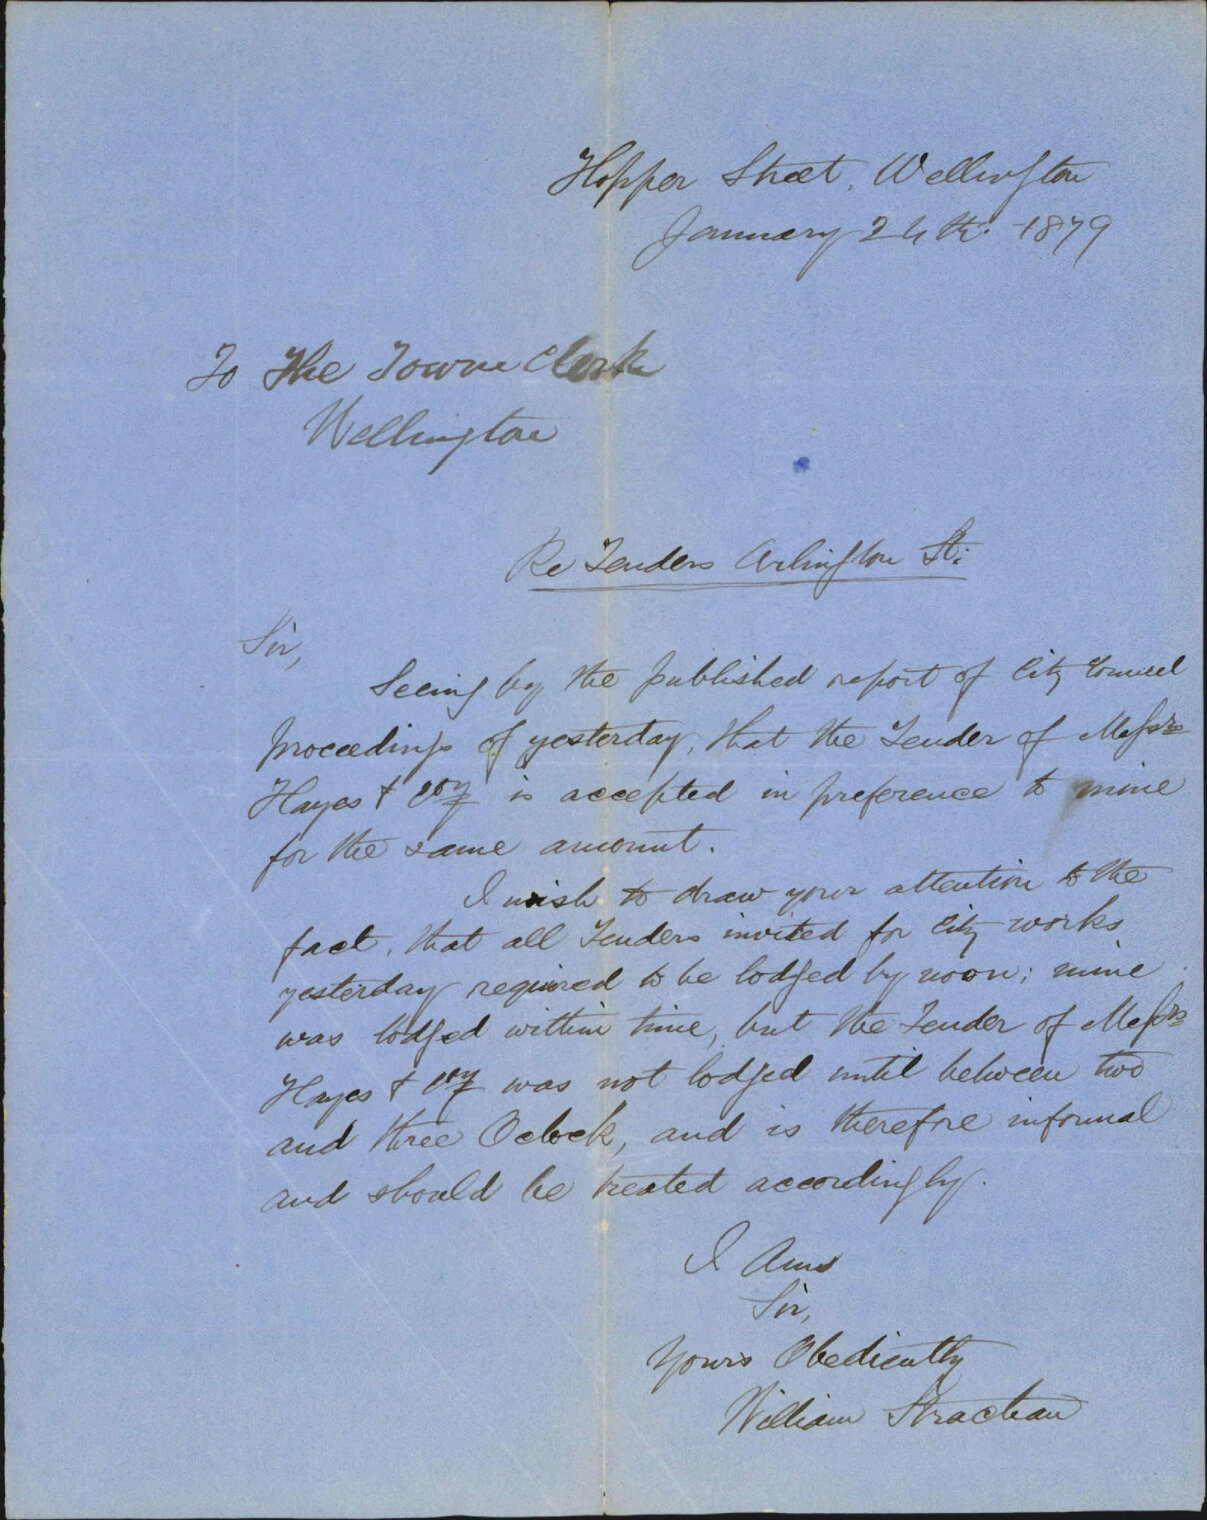 Hopper Street, Wellington
January 24th. 1879
To The Town Clerk
Wellington
Re Tenders Arlington St:
Sir,
Seeing by the published report of City Council
proceedings of yesterday, that the Tender of Messrs
Hayes & Coy is accepted in preference to mine
for the same amount.
I wish to draw your attention to the
fact, that all Tenders invited for City works
yesterday required to be lodged by noon; mine
was lodged within time, but the Tender of Messrs
Hayes & Coy was not lodged until between two
and three Oclock, and is therefore informal
and should be treated accordingly.
I Am
Sir,
Yours Obediently
William Strachan